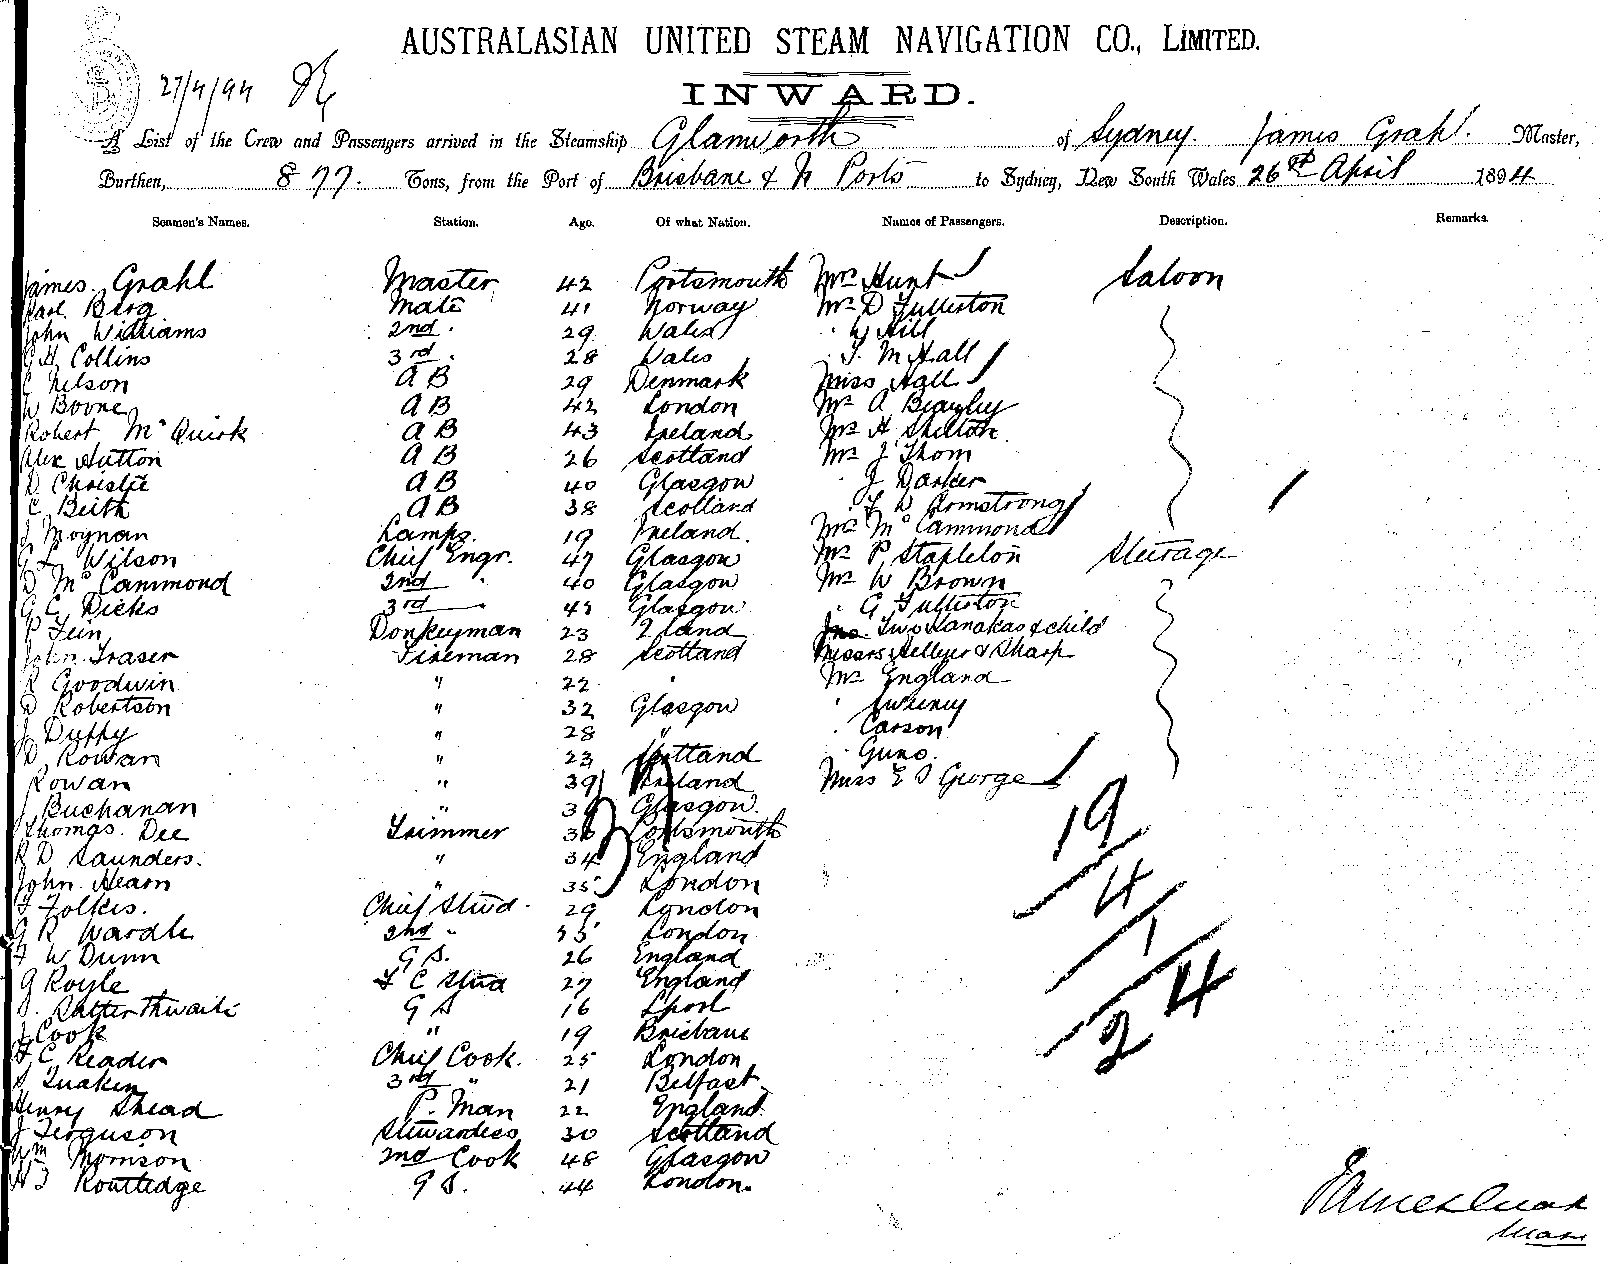 AUSTRALASIAN UNITED STEAM NAVIGATION CO., LIMITED.
27/4/94
INWARD.
A List of the Crew and Passengers arrived in the Steamship Glamworth of Sydney. James Grahl. Master,
Burthen, 877. Tons, from the Port of Brisbane & N Ports to Sydney, New South Wales 26th April 1894
Seamen's Names. Station. Age. Of what Nation. Names of Passengers. Description. Remarks.
James Grahl Master 42 Portsmouth Mrs Hunt Saloon
Carl Berg Mate 41 Norway Mr D Fullerton
John Williams 2nd " 29 Wales " W Hill
G H Collins 3rd " 28 Wales " T. M Hall
C Nelson A B 29 Denmark Miss Hall
W Boone A B 42 London Mr A Beazley
Robert McQuirk A B 43 Ireland Mr H Skelton
Alex Hutton A B 26 Scotland Mr J Thom
D Christie A B 40 Glasgow " J Darker
C Beith A B 38 Scotland " F W Armstrong
J Moynan Lamps. 19 Ireland. Mrs McCammond
G L Wilson Chief Engr. 47 Glasgow Mr P Stapleton Steerage
D McCammond 2nd " 40 Glasgow Mr W Brown
G C Dicks 3rd " Glasgow " G Fullerton
P Fein Donkeyman 23 Zland Two Kanakas & child
John Fraser Fireman 28 Scotland Messrs Hellyer & Sharp
R Goodwin " 22 " Mr England
D Robertson " 32 Glasgow " Sweeney
J Duffy " 28 " " Carson
D Rowan " 23 Scotland " Guno.
Rowan " 39 Ireland Miss E S George
J Buchanan " Glasgow. 19
Thomas Dee Trimmer 36 Portsmouth
R D Saunders. " 34 England 4
John Hearn " 35 London
F Folkes. Chief Stwd. 29 London 1
G R Wardle 2nd " London
F W Dunn G S. 26 England 24
G Royle F C Stwd 27 England
Satterthwaite G S 16 Lpool
J Cook " 19 Brisbane
F C Reader Chief Cook. 25 London
Quaken 3rd " 21 Belfast
Henry Shead P. Man 22 England
J Ferguson Stewardess 30 Scotland
Wm Morrison 2nd Cook 48 Glasgow
Routledge G S. 44 London.